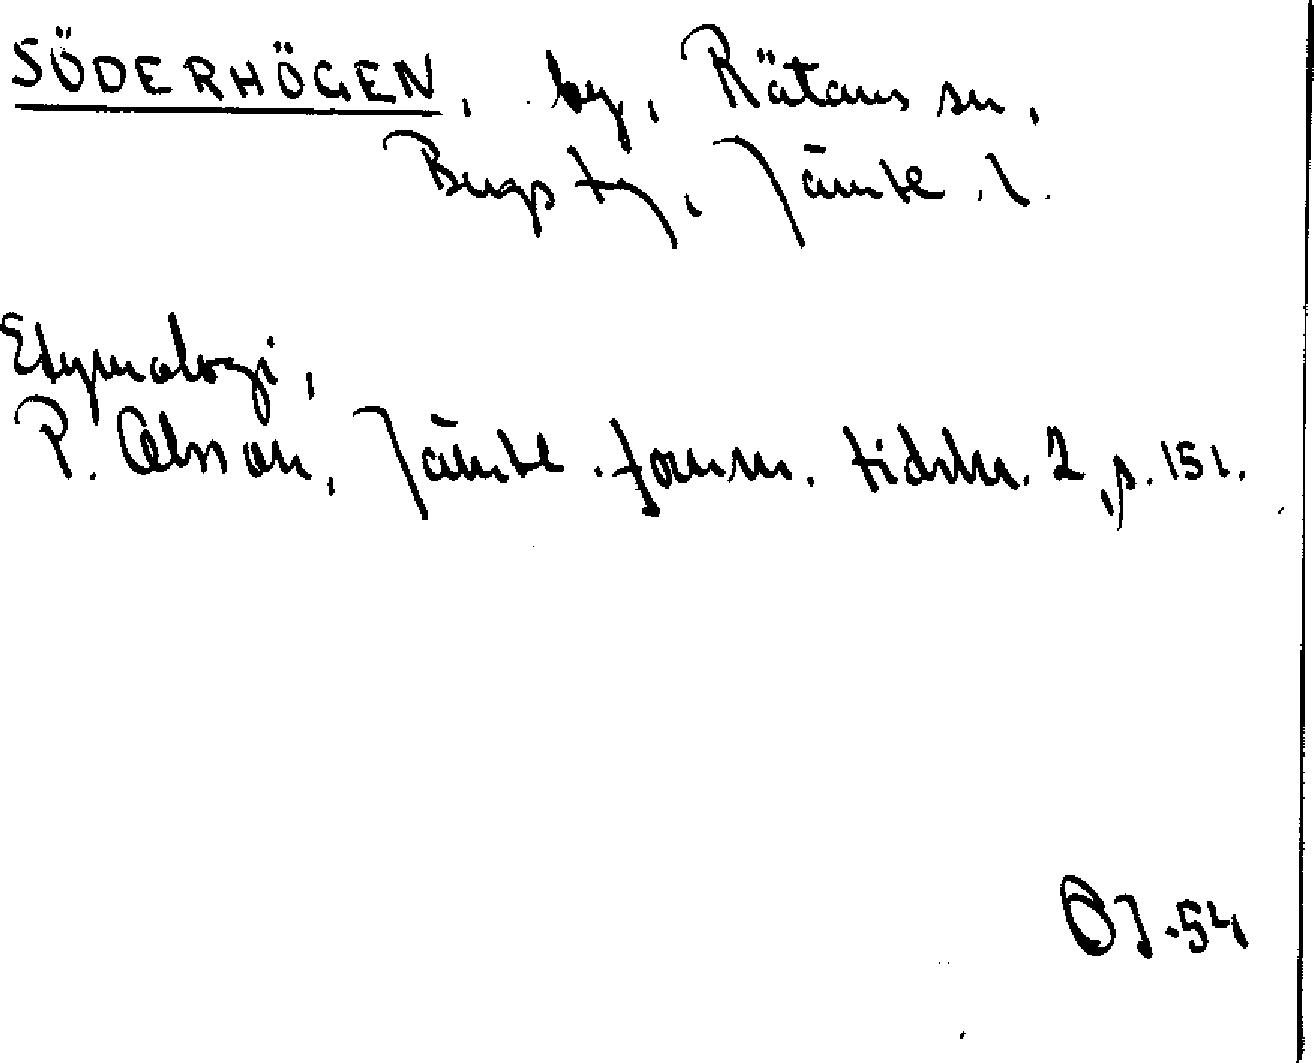 SÖDERHÖGEN, by, Rätans sn,
Bergs tg, Jämtl. l.
Etymologi,
P. Olsson, Jämtl. fornm. tidskr. 2, p. 151.
OJ-54